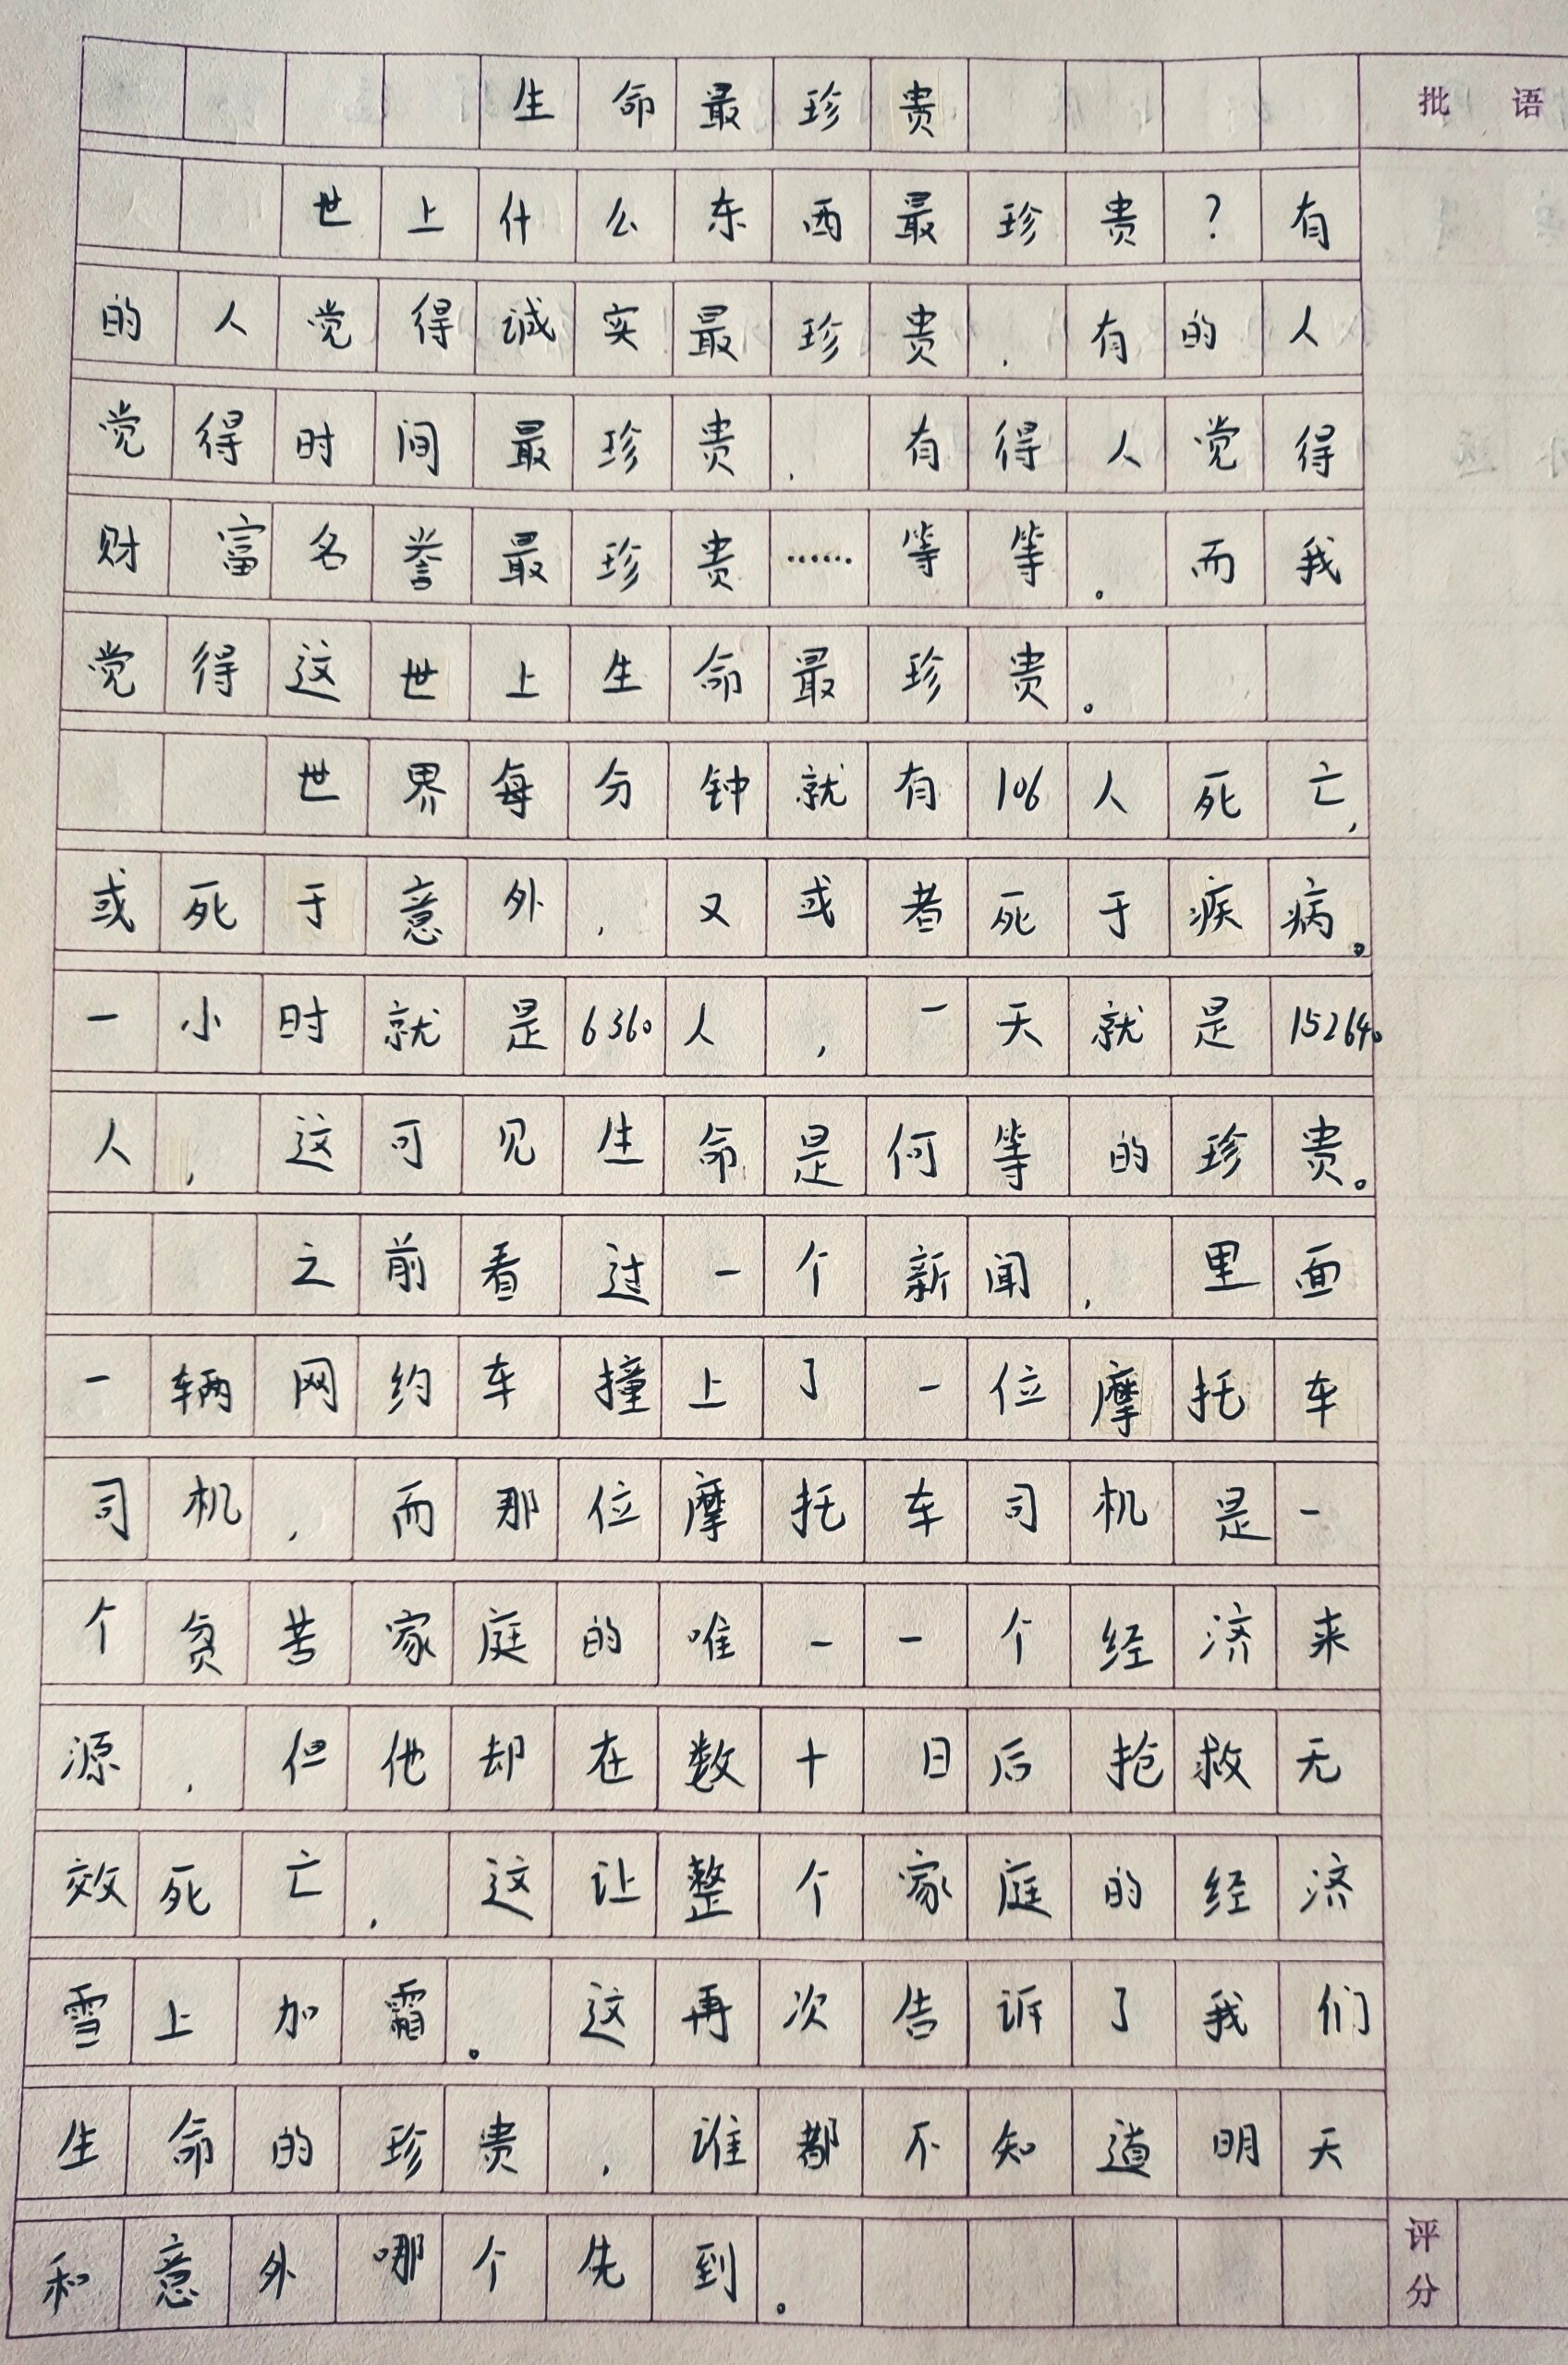 生命最珍贵
批语
世上什么东西最珍贵?有
的人觉得诚实最珍贵,有的人
觉得时间最珍贵,有得人觉得
财富名誉最珍贵……等等。而我
觉得这世上生命最珍贵。
世界每分钟就有106人死亡,
或死于意外,又或者死于疾病。
一小时就是6360人,一天就是152640
人,这可见生命是何等的珍贵。
之前看过一个新闻,里面
一辆网约车撞上了一位摩托车
司机,而那位摩托车司机是一
个贫苦家庭的唯一一个经济来
源,但他却在数十日后抢救无
效死亡,这让整个家庭的经济
雪上加霜。这再次告诉了我们
生命的珍贵,谁都不知道明天
和意外哪个先到。
评分